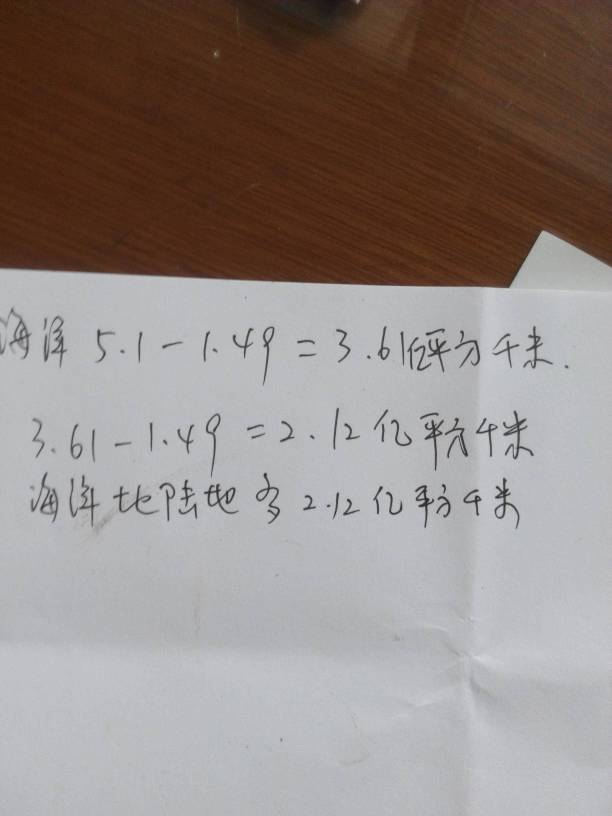 海洋 5.1-1.49=3.61亿平方千米.
3.61-1.49=2.12亿平方千米
海洋地陆地多2.12亿平方千米